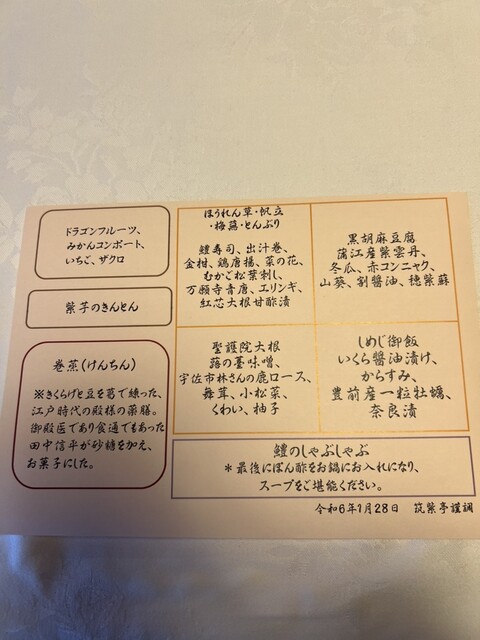 ドラゴンフルーツ、
みかんコンポート、
いちご、ザクロ
紫芋のきんとん
巻蒸(けんちん)
※きくらげと豆を葛で練った、
江戸時代の殿様の薬膳。
御殿医であり食通でもあった
田中信平が砂糖を加え、
お菓子にした。
ほうれん草・帆立
・梅蕗・とんぶり
鱧寿司、出汁巻、
金柑、鶏唐揚、菜の花、
むかご松葉刺し、
万願寺青唐、エリンギ、
紅芯大根甘酢漬
黒胡麻豆腐
蒲江産紫雲丹、
冬瓜、赤コンニャク、
山葵、割醤油、穂紫蘇
聖護院大根
蕗の薹味噌、
宇佐市林さんの鹿ロース、
舞茸、小松菜、
くわい、柚子
しめじ御飯
いくら醤油漬け、
からすみ、
豊前産一粒牡蠣、
奈良漬
鱧のしゃぶしゃぶ
*最後にぽん酢をお鍋にお入れになり、
スープをご堪能ください。
令和6年1月28日 筑紫亭謹調